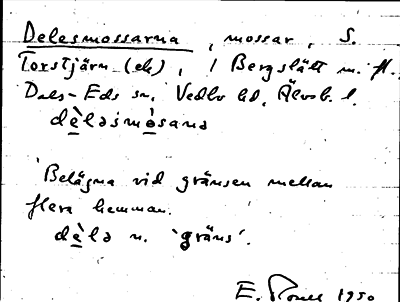 Delesmossarna, mossar, S.
Torstjärn (ek), i Bergslätt m. fl.
Dals-Eds sn, Vedbo hd, Älvsb. l.
dèləsmòsana
Belägna vid gränsen mellan
flera hemman.
dèlə n. 'gräns'.
E. 1950